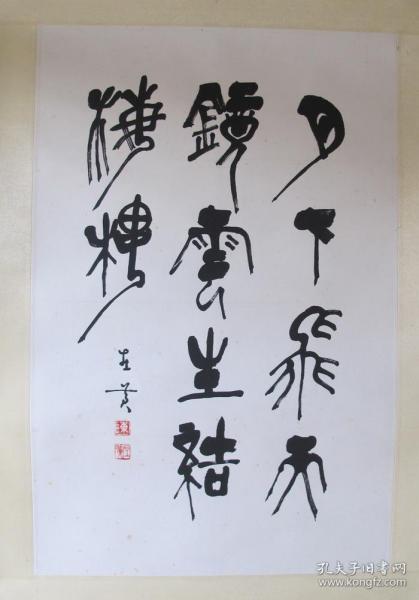 月下飛天
鏡雲生結
海樓
孔夫子旧书网
www.kongfz.com